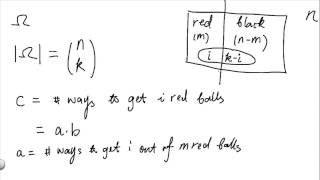 Ω
|Ω| = (n k)
red black n
(m) (n-m)
i k-i
c = # ways to get i red balls
= a.b
a = # ways to get i out of m red balls